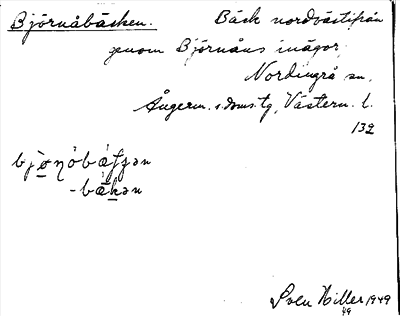 Björnåbäcken. Bäck nordvästifrån
genom Björnåns inägor,
Nordingrå sn,
Ångerm. s. doms.tg, Västern. l.
132
-bäkən
Sven Hiller 1949
49